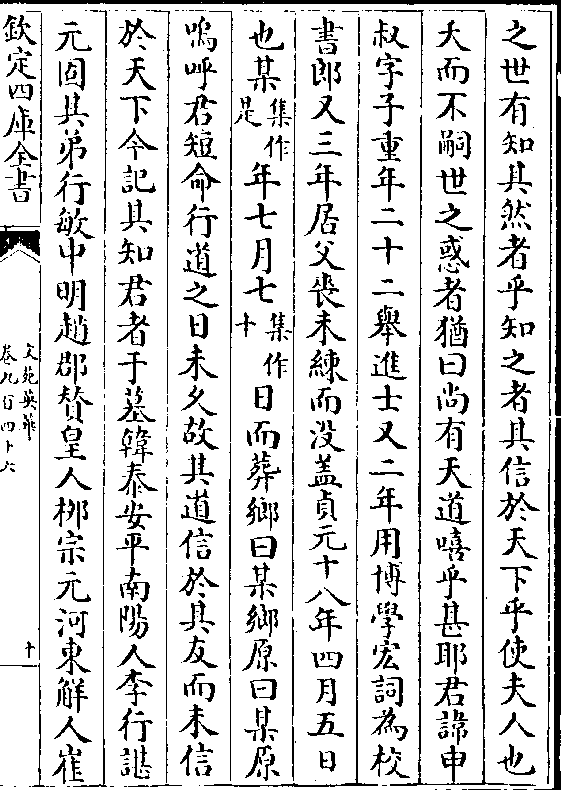 之世有知其然者乎知之者其信於天下乎使夫人也
夭而不嗣世之惑者猶曰尚有天道嘻乎甚耶君諱申
叔字子重年二十二舉進士又二年用博學宏詞為校
書郎又三年居父喪未練而没盖貞元十八年四月五日
也某集作是年七月七集作十日而葬鄉曰某鄉原曰某原
嗚呼君短命行道之日未久故其道信於其友而未信
於天下今記其知君者于墓韓泰安平南陽人李行諶
元固其弟行敏中明趙郡贊皇人栁宗元河東解人崔
欽定四庫全書
文苑英華
卷九百四十六
十